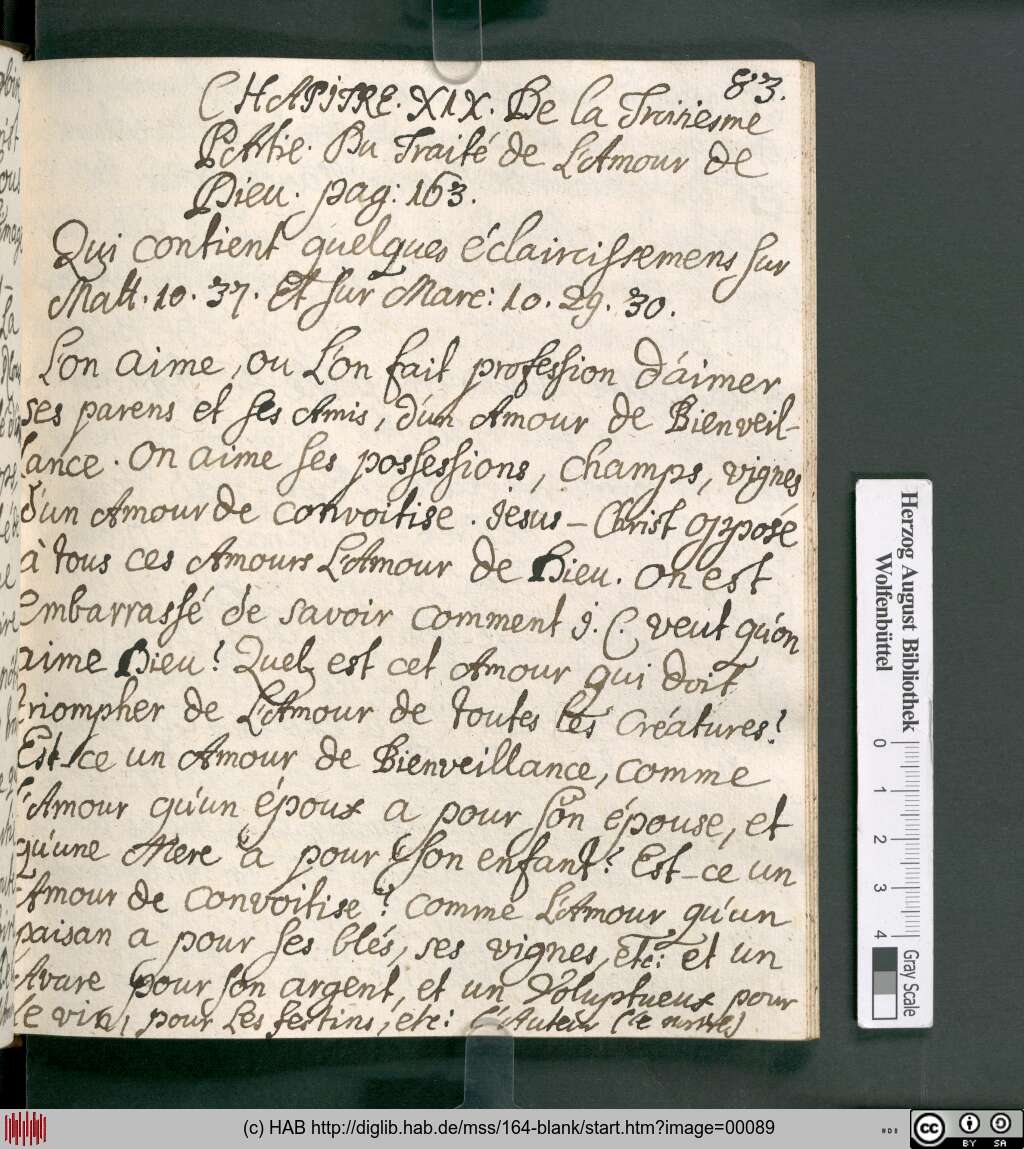 83.
CHAPITRE. XIX. De la Troisiesme
Partie. Du Traité de L'Amour de
Dieu. pag: 163.
Qui contient quelques éclaircissemens sur
Matt. 10. 37. Et sur Marc: 10. 29. 30.
L'on aime, ou L'on fait profession d'aimer
ses parens et ses Amis, d'un Amour de Bienveil-
lance. On aime ses possessions, champs, vignes
d'un Amour de convoitise. Jesus-Christ opposé
à tous ces Amours L'Amour de Dieu. On est
embarrassé de savoir comment J. C. veut qu'on
aime Dieu? Quel est cet Amour qui doit
triompher de L'Amour de toutes les Créatures?
Est-ce un Amour de Bienveillance, comme
l'Amour qu'un époux a pour son épouse, et
qu'une Mere a pour son enfant? Est-ce un
Amour de convoitise? comme L'Amour qu'un
paisan a pour ses blés, ses vignes, etc: et un
Avare pour son argent, et un Voluptueux pour
le vin, pour les festins, etc: L'Auteur
Herzog August Bibliothek
Wolfenbüttel
0 1 2 3 4
Gray Scale
(c) HAB http://diglib.hab.de/mss/164-blank/start.htm?image=00089
cc BY SA